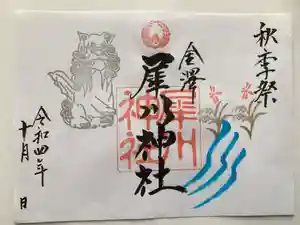 秋季祭
金澤
犀川神社
犀川
神社
令和四年
十月 日